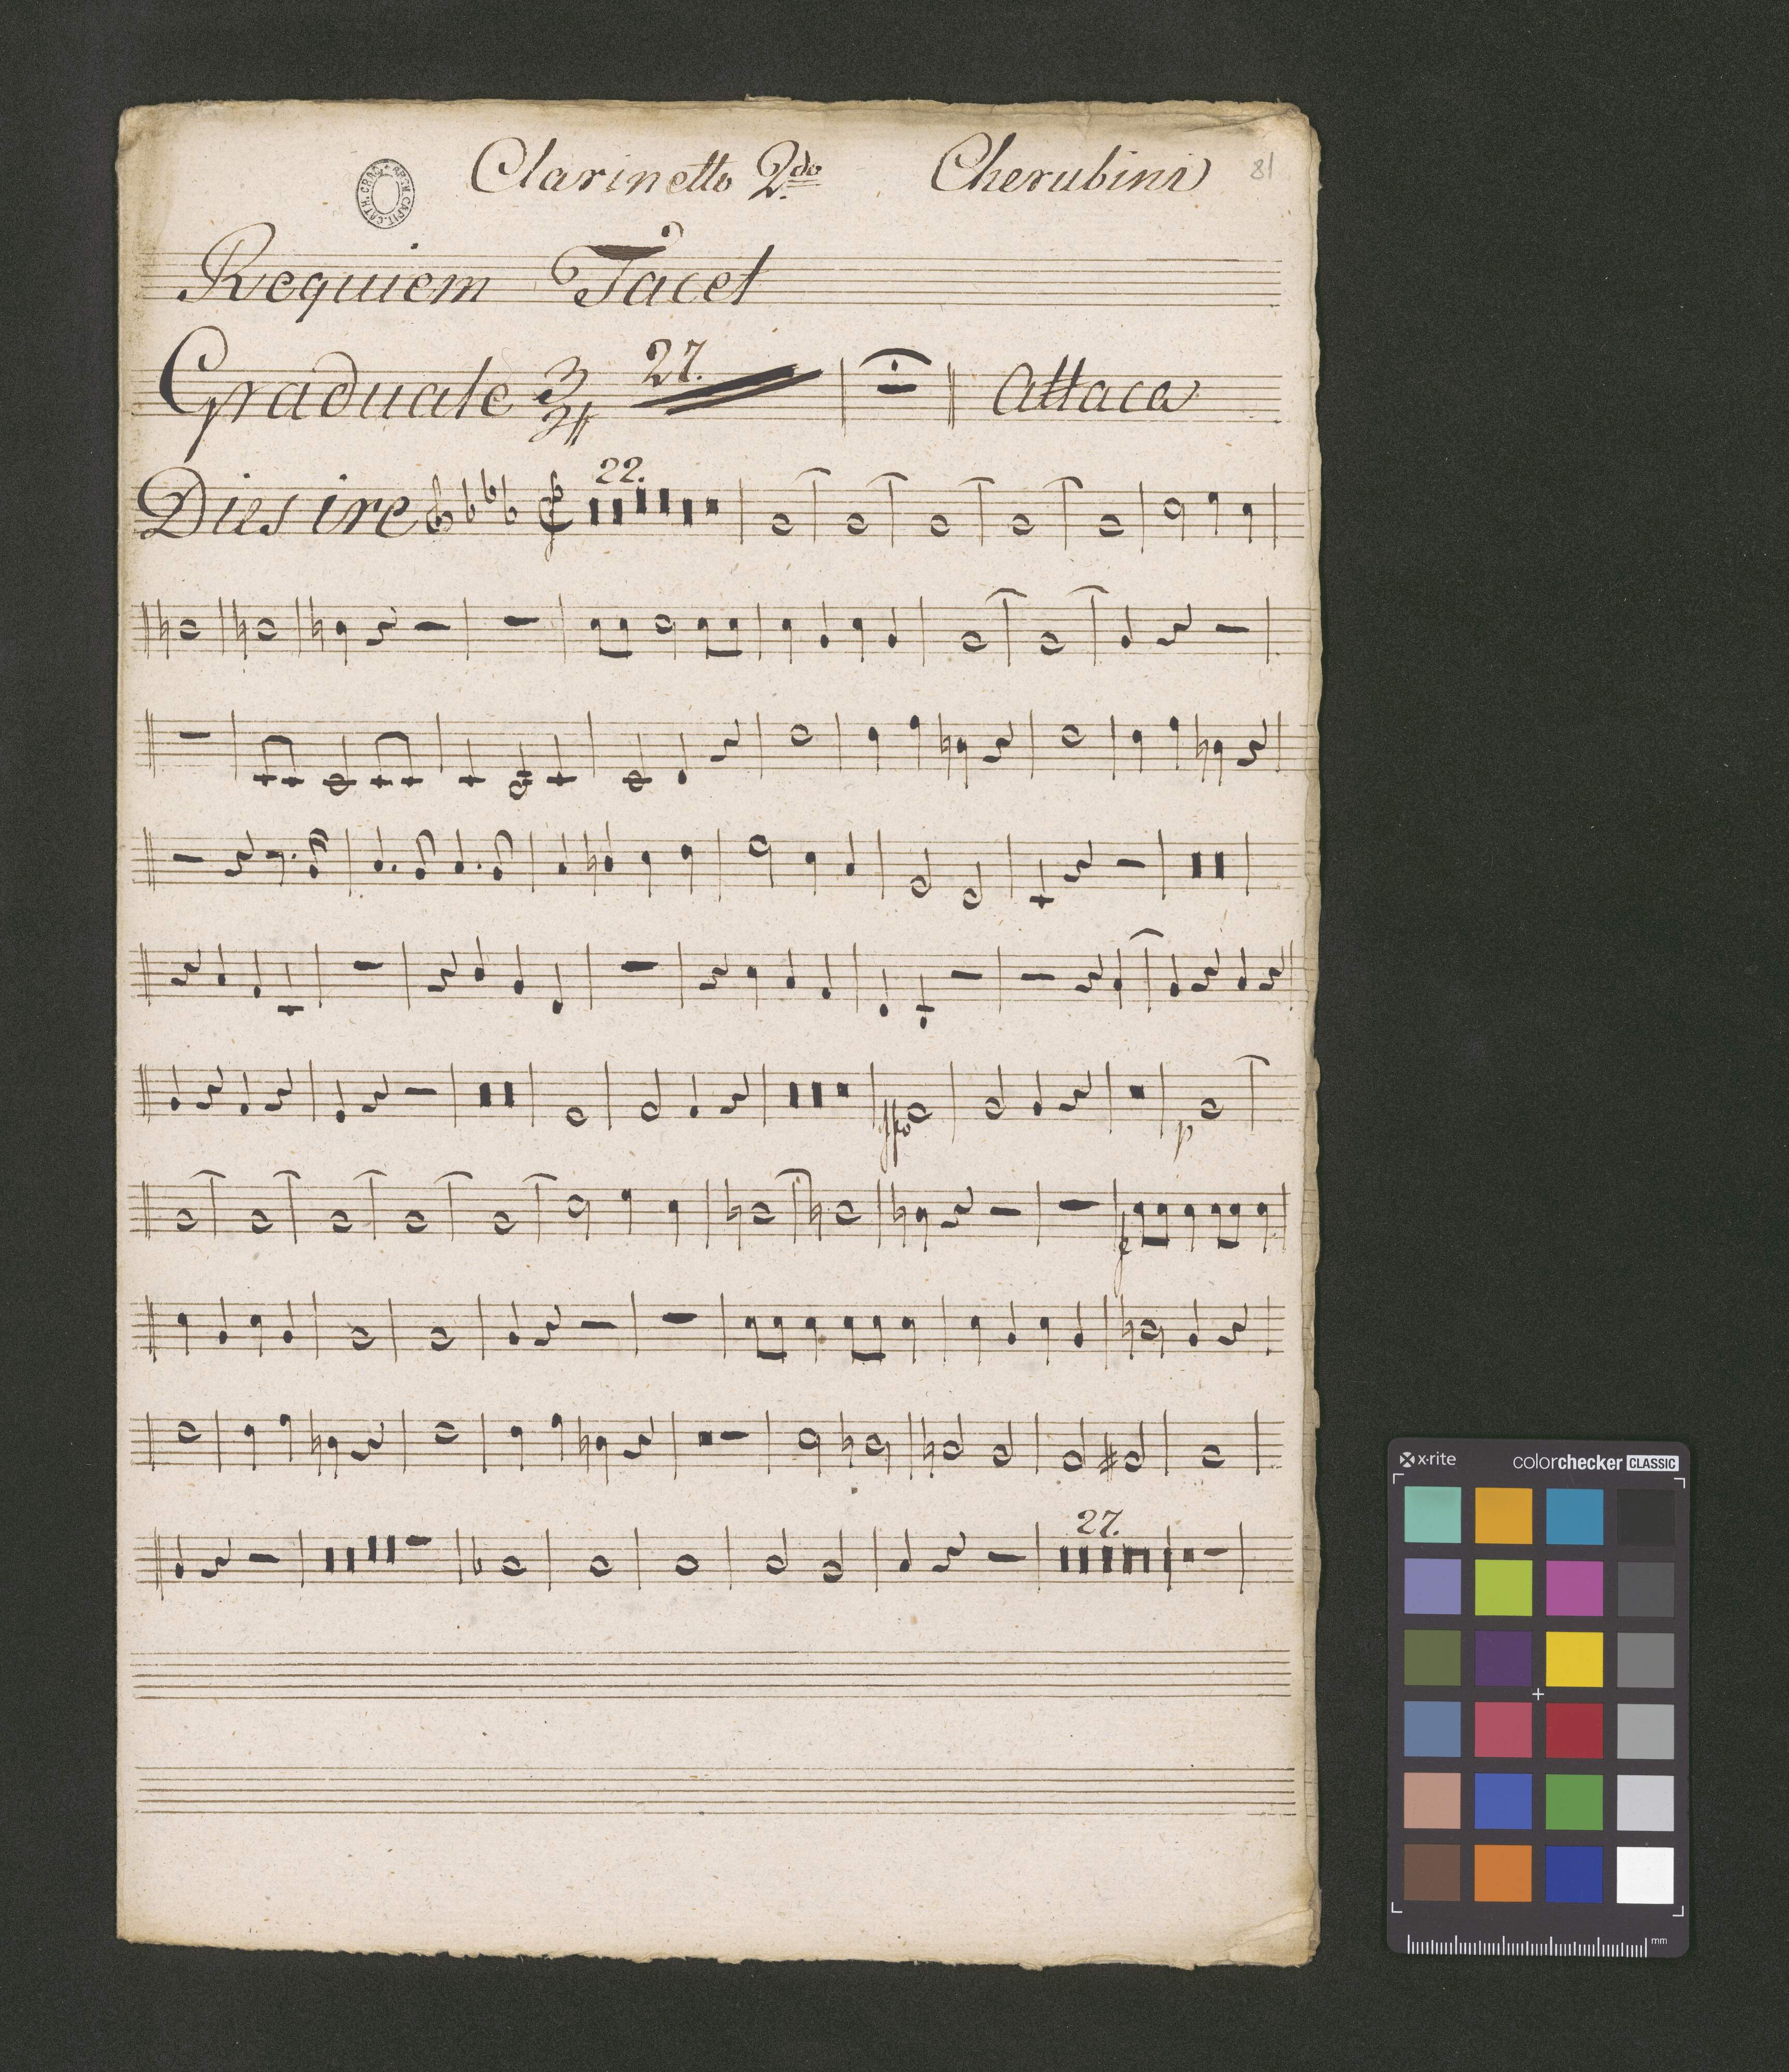 Clarinetto 2do Cherubini 81
ARCH. CAPIT. CATH. CRAC.
Requiem Tacet
Graduale 3/4 27. Attaca
Dies ire 22.
p
f
27.
x-rite colorchecker CLASSIC
mm